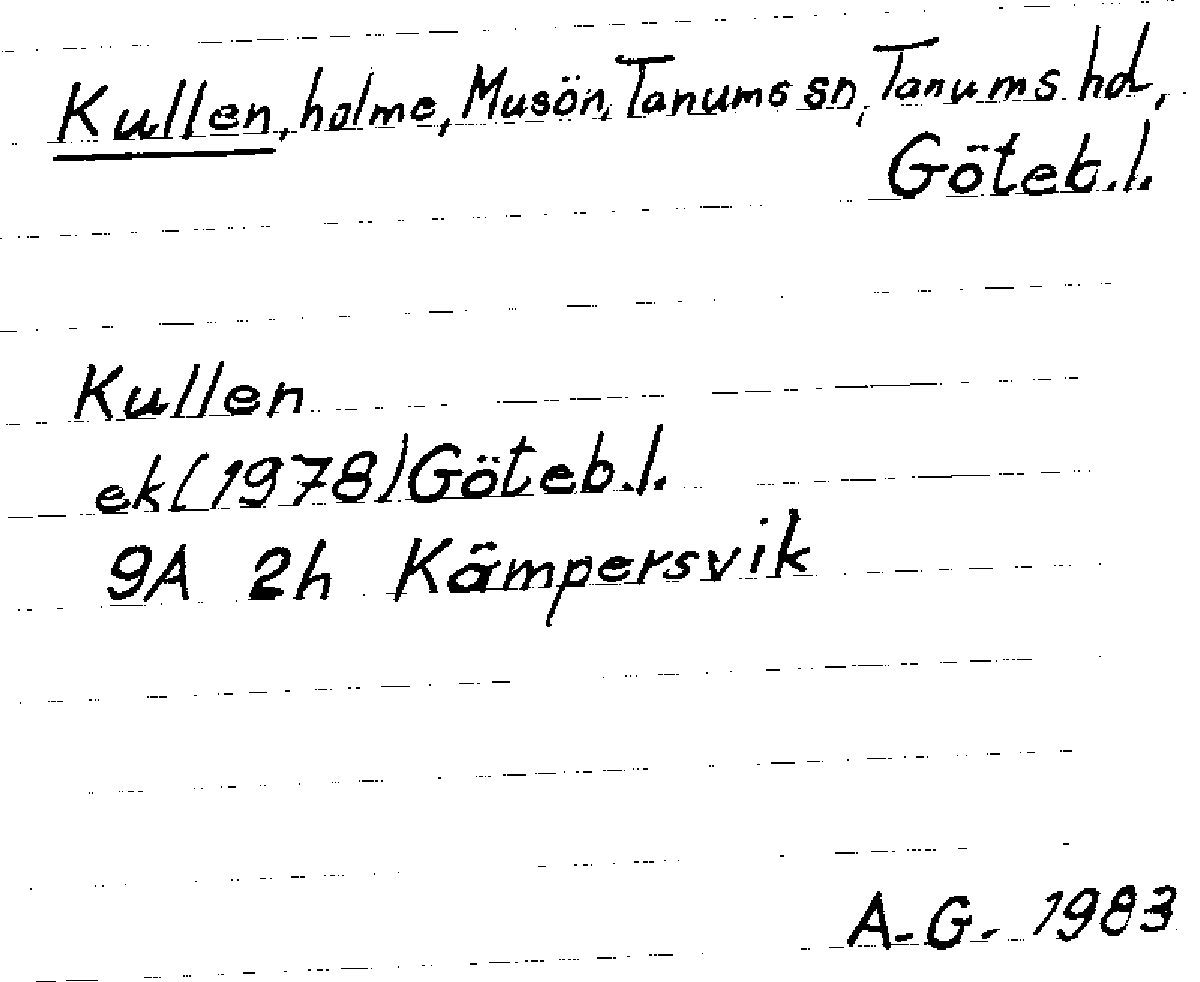 Kullen, holme, Musön, Tanums sn, Tanums hd,
Göteb.l.
Kullen
ek(1978)Göteb.l.
9A 2h Kämpersvik
A-G- 1983